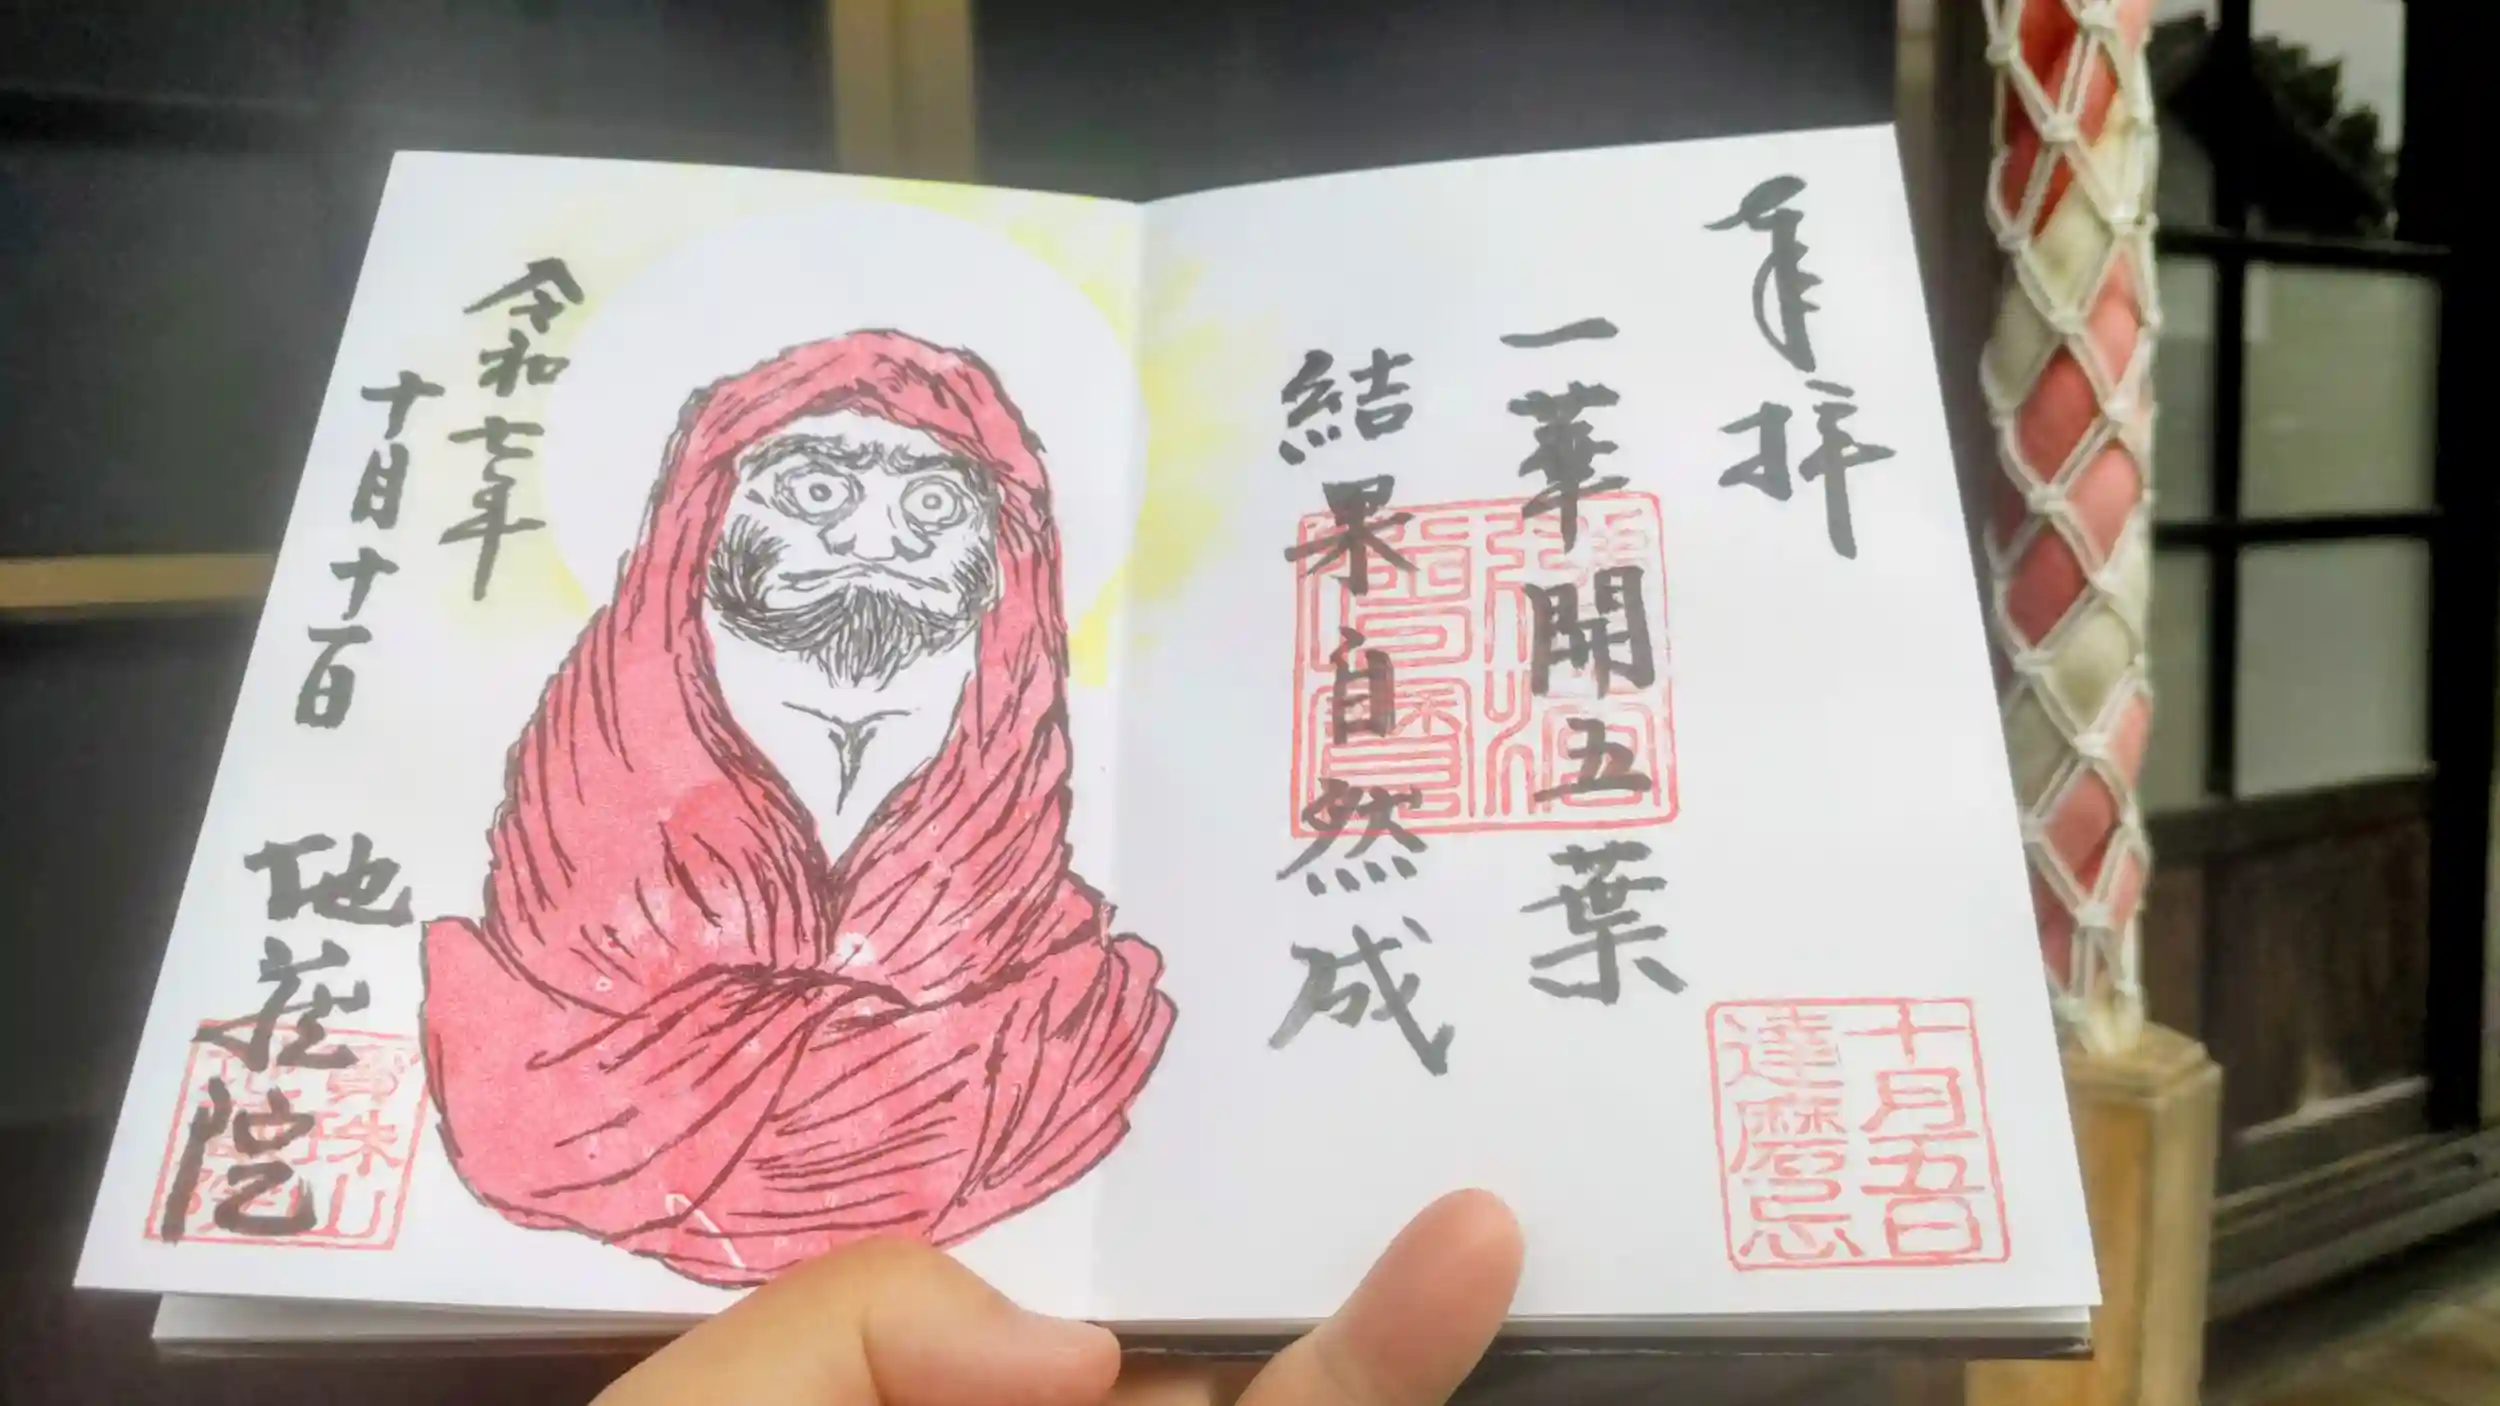 奉拝
一華開五葉
結果自然成
十月五日
達磨忌
令和七年
十月十一日
地蔵院
寶珠山
地蔵院